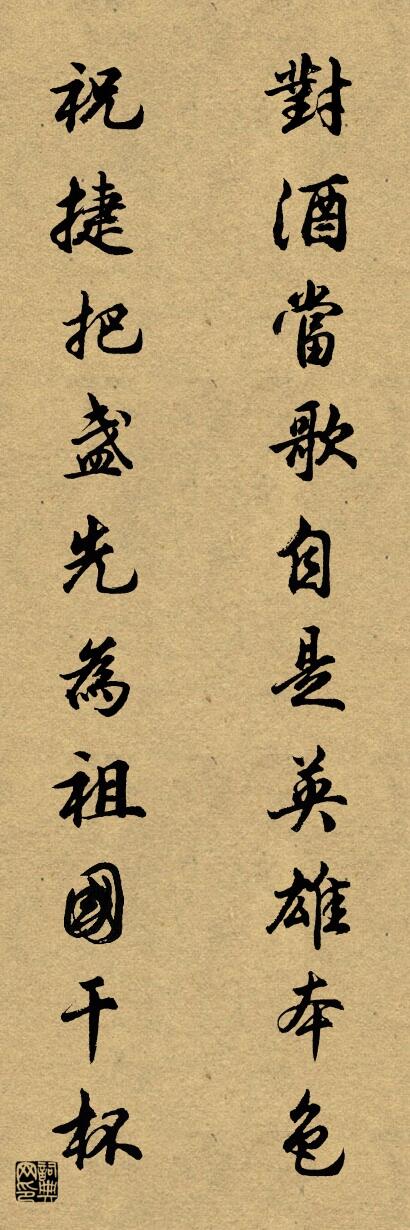 對酒當歌自是英雄本色
祝捷把盏先為祖國干杯
詞典網印